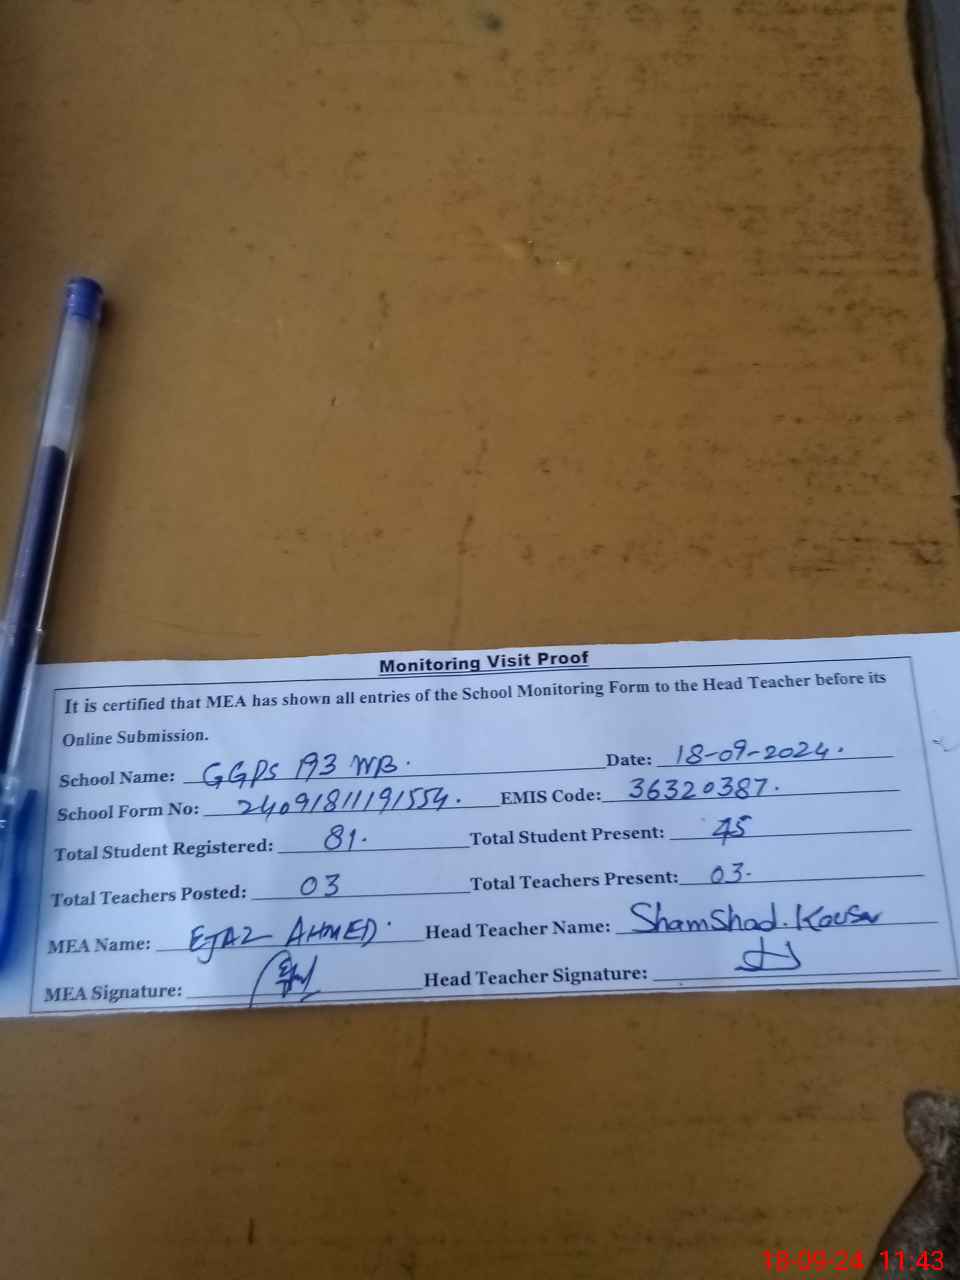 Monitoring Visit Proof
It is certified that MEA has shown all entries of the School Monitoring Form to the Head Teacher before its
Online Submission.
School Name: GGPS 193 WB. Date: 18-09-2024.
School Form No: 24091811191554. EMIS Code: 36320387.
Total Student Registered: 81. Total Student Present: 45
Total Teachers Posted: 03 Total Teachers Present: 03.
MEA Name: EJAZ AHMED. Head Teacher Name: Shamshad. Kousar
MEA Signature: Head Teacher Signature:
18-09-24 11:43